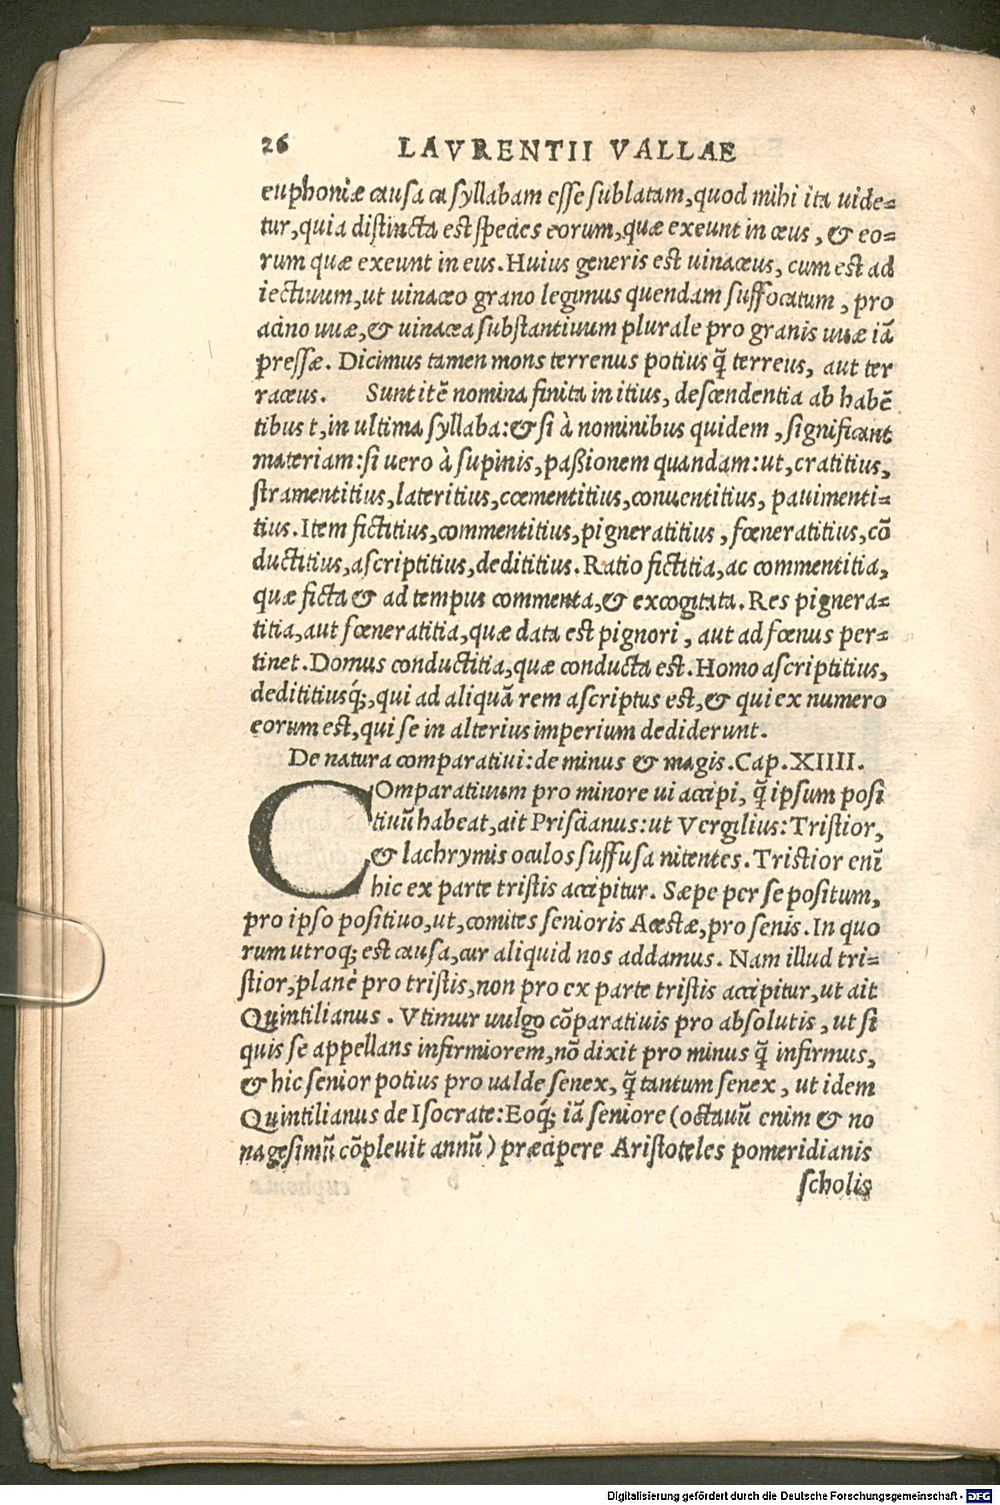 26 LAVRENTII VALLAE
euphoniæ causa ca syllabam esse sublatam, quod mihi ita uide=
tur, quia distincta est species eorum, quæ exeunt in ceus, & eo=
rum quæ exeunt in eus. Huius generis est uinaceus, cum est ad
iectiuum, ut uinaceo grano legimus quendam suffocatum, pro
acino uuæ, & uinacea substantiuum plurale pro granis uuæ iā
pressæ. Dicimus tamen mons terrenus potius q̄ terreus, aut ter
raceus. Sunt itē nomina finita in itius, descendentia ab habē
tibus t, in ultima syllaba: & si à nominibus quidem, significant
materiam: si uero à supinis, paßionem quandam: ut, cratitius,
stramentitius, lateritius, cœmentitius, conuentitius, pauimenti=
tius. Item fictitius, commentitius, pigneratitius, fœneratitius, cō
ductitius, ascriptitius, dedititius. Ratio fictitia, ac commentitia,
quæ ficta & ad tempus commenta, & excogitata. Res pignera=
titia, aut fœneratitia, quæ data est pignori, aut ad fœnus per=
tinet. Domus conductitia, quæ conducta est. Homo ascriptitius,
dedititiusq́;, qui ad aliquā rem ascriptus est, & qui ex numero
eorum est, qui se in alterius imperium dediderunt.
De natura comparatiui: de minus & magis. Cap. XIIII.
COmparatiuum pro minore ui accipi, q̄ ipsum posi
tiuū habeat, ait Priscianus: ut Vergilius: Tristior,
& lachrymis oculos suffusa nitentes. Tristior enī
hic ex parte tristis accipitur. Sæpe per se positum,
pro ipso positiuo, ut, comites senioris Acestæ, pro senis. In quo
rum utroq; est causa, cur aliquid nos addamus. Nam illud tri=
stior, planè pro tristis, non pro ex parte tristis accipitur, ut ait
Quintilianus. Vtimur uulgo cōparatiuis pro absolutis, ut si
quis se appellans infirmiorem, nō dixit pro minus q̄ infirmus,
& hic senior potius pro ualde senex, q̄ tantum senex, ut idem
Quintilianus de Isocrate: Eoq́; iā seniore (octauū enim & no
nagesimū cōpleuit annū) præcipere Aristoteles pomeridianis
scholis
Digitalisierung gefördert durch die Deutsche Forschungsgemeinschaft - DFG